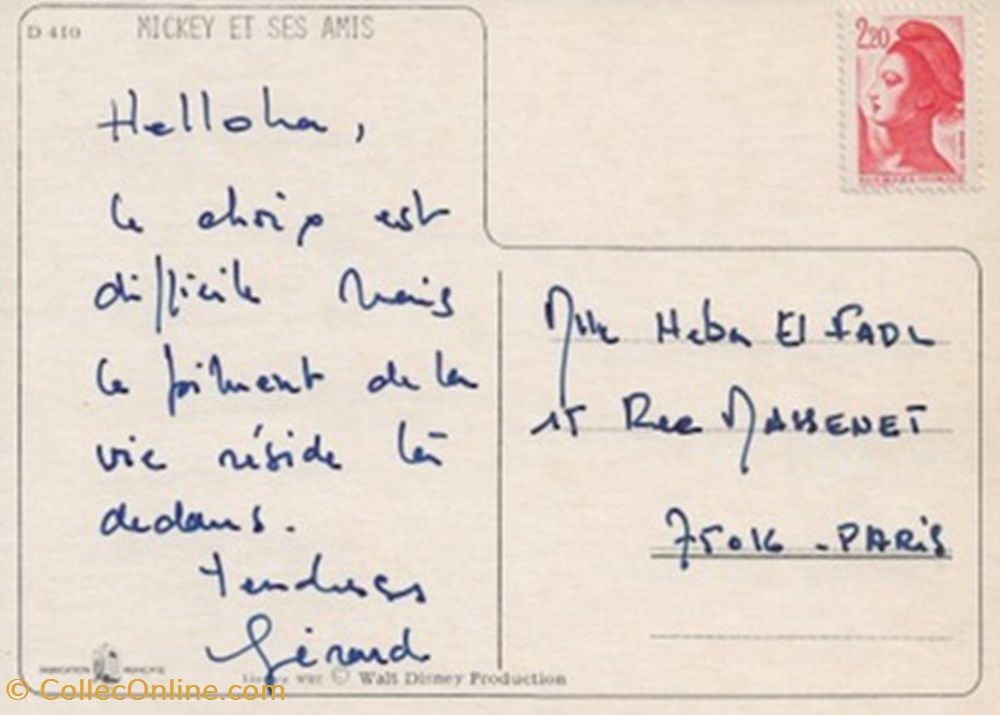 D 410 MICKEY ET SES AMIS
2,20
Helloha,
le choix est
difficile Mais
le piment de la
vie réside là
dedans.
tendresses
Gérard
Mlle Heba El FADL
15 Rue MASSENET
75016 - PARIS
FABRICATION FRANÇAISE
Licence WDP © Walt Disney Production
© CollecOnline.com